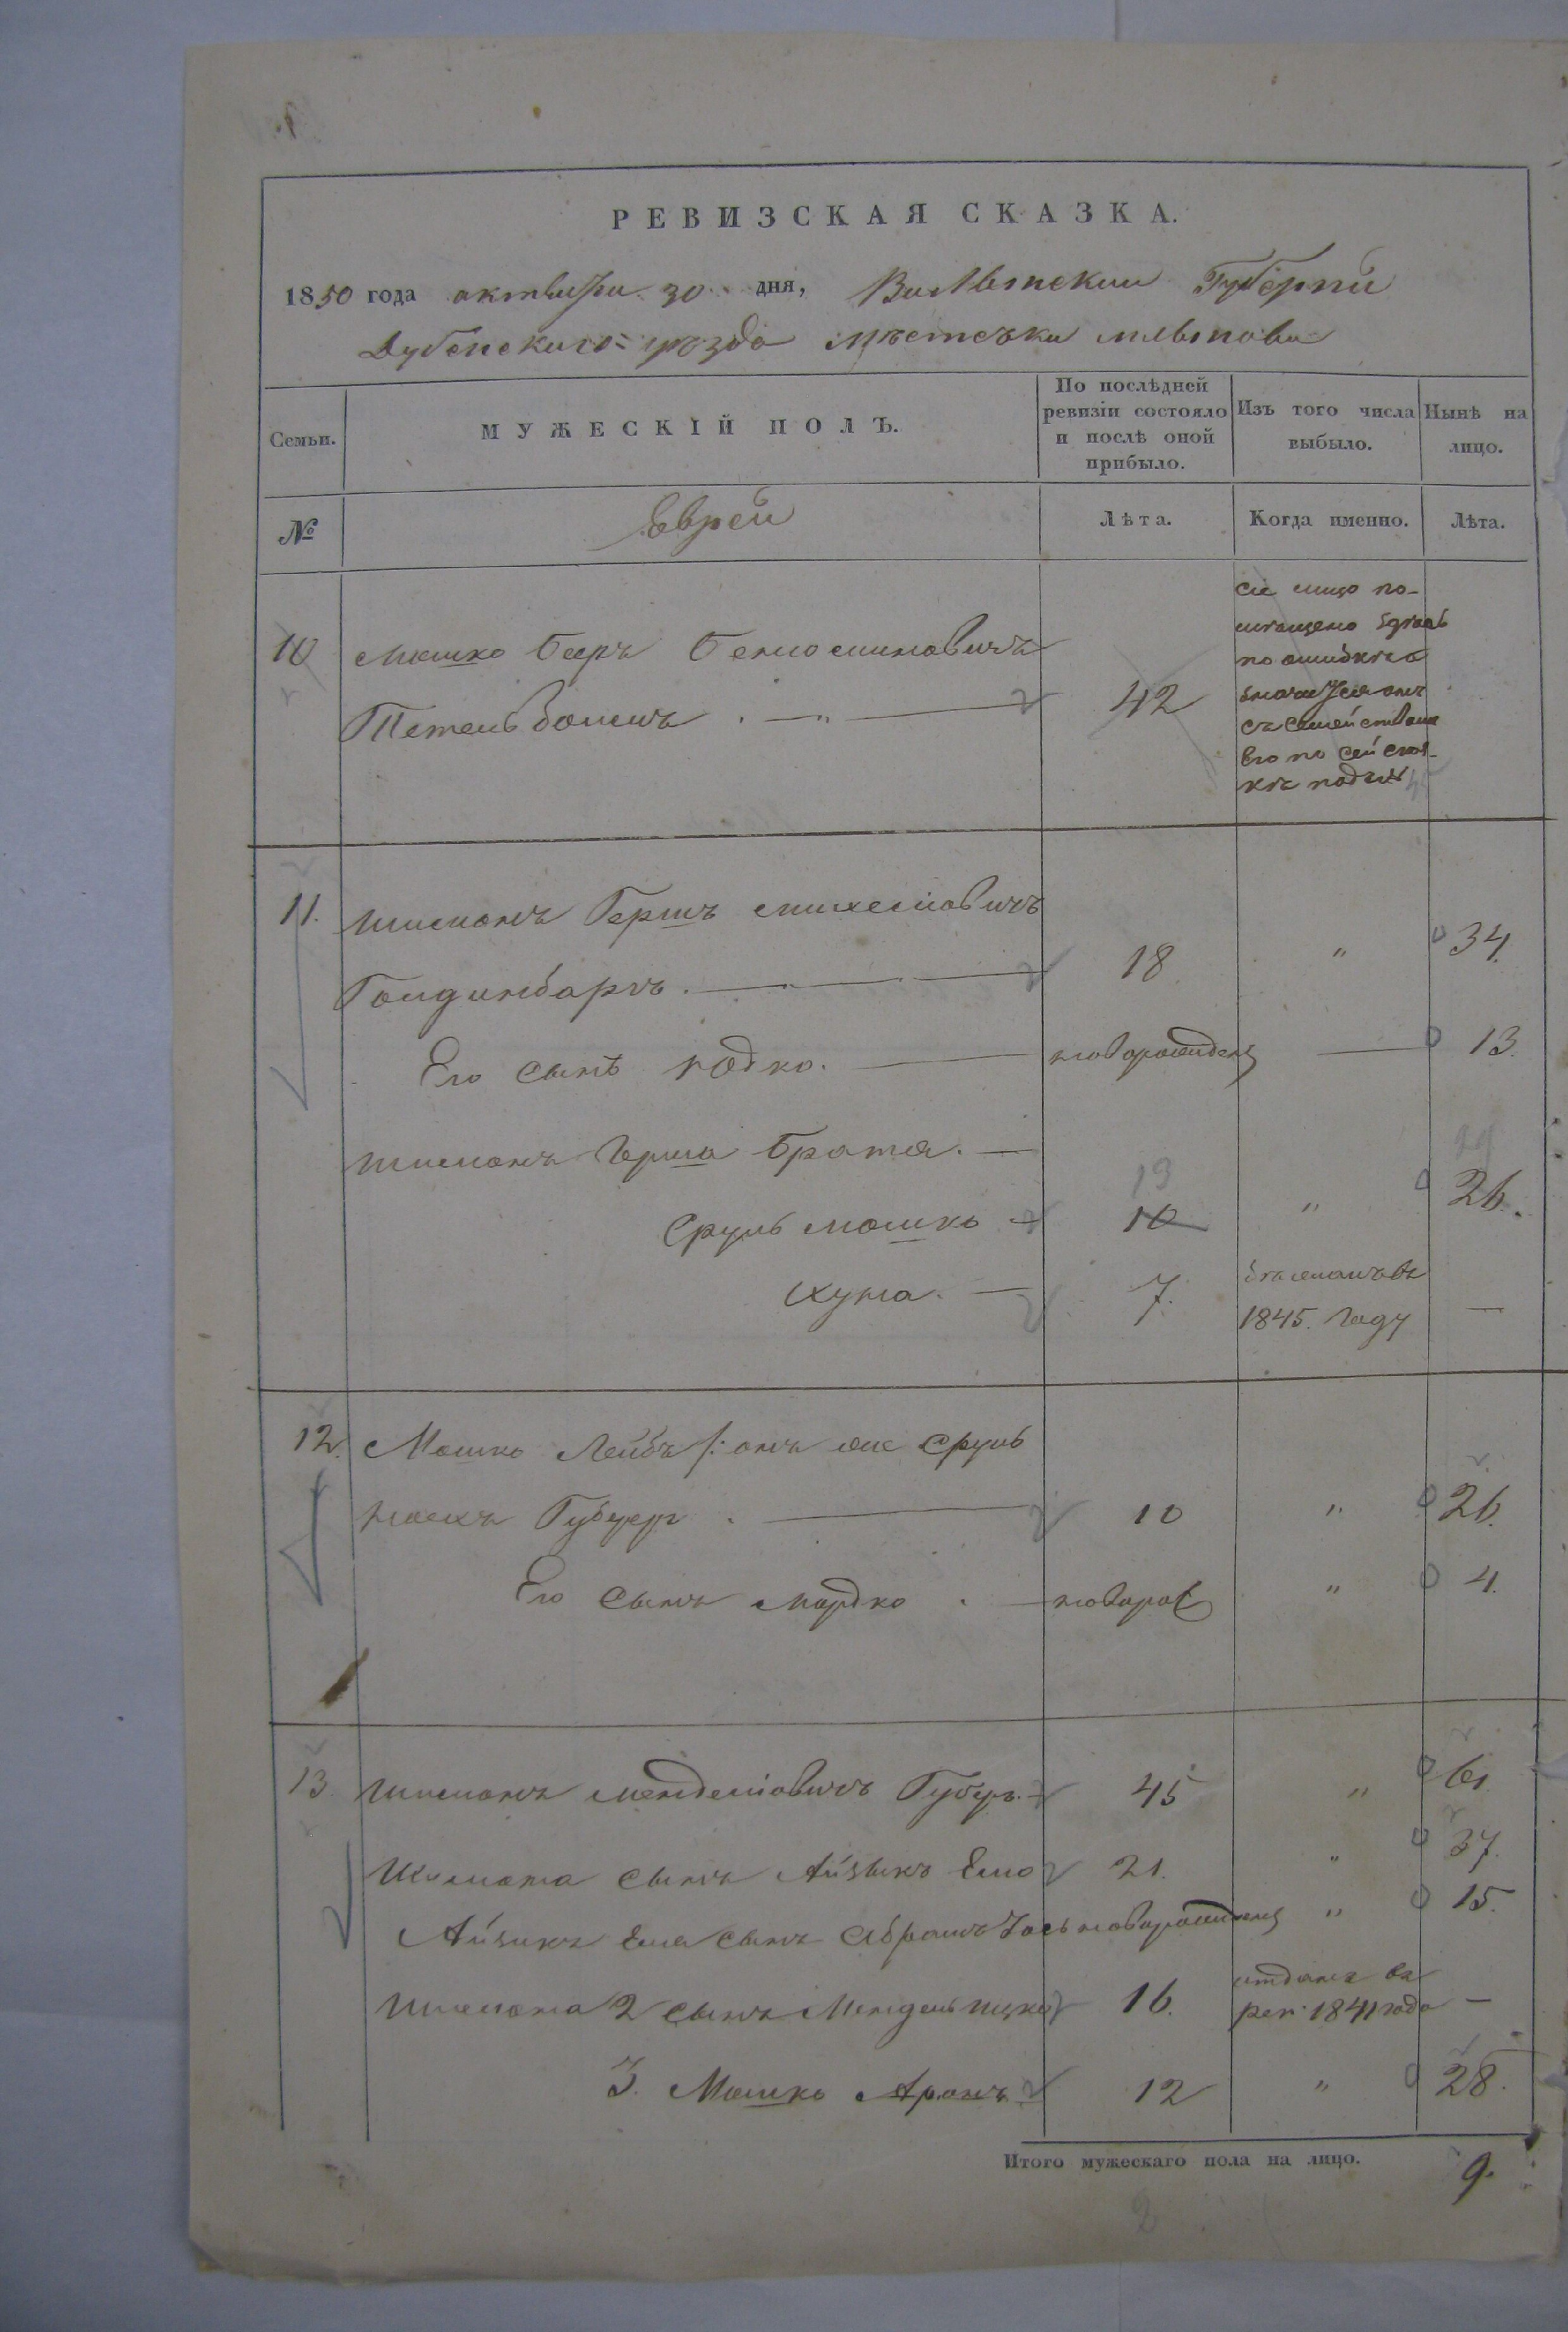 РЕВИЗСКАЯ СКАЗКА.
1850 года октября 30 дня, Волынской Губерніи
Дубенскаго уѣзда мѣстечка Млынова
Семьи.
МУЖЕСКІЙ ПОЛЪ.
По послѣдней ревизіи состояло и послѣ оной прибыло.
Изъ того числа выбыло.
Нынѣ на лицо.
№
Евреи
Лѣта.
Когда именно.
Лѣта.
10
Мошко Беръ Беніоминовичъ
Тетельбоимъ . — „ —
42
сіе лицо по-
мѣщено здѣсь
по ошибкѣ а
значится онъ
съ семействомъ
его по сей сказ-
кѣ подъ №
11.
Шимонъ Гершъ Михеліовичъ
Голдинбаргъ . — 18 „ 34.
Его сынъ Юдко. — новорожденъ — 13.
Шимонъ Герша братья. —
19 29
Сруль Мошко — 10 „ 26.
Хуна. — 7.
1845. году —
12.
Мошко Лейбъ /: онъ же Сруль
Губеръ . — 10 „ 26.
Его сынъ Мордко . — новорож „ 4.
13
Шимонъ Менделіовичъ Губеръ. — 45 „ 61
Шимона сынъ Айзыкъ Еліо 21. „ 37.
Айзыкъ Еліа сынъ Абрамъ Іось новорожденъ „ 15.
Шимона 2 сынъ Мендель Ицко 16. отданъ въ
рек. 1841 года —
3. Мошко Аронъ — 12 „ 28.
Итого мужескаго пола на лицо. 9.
2